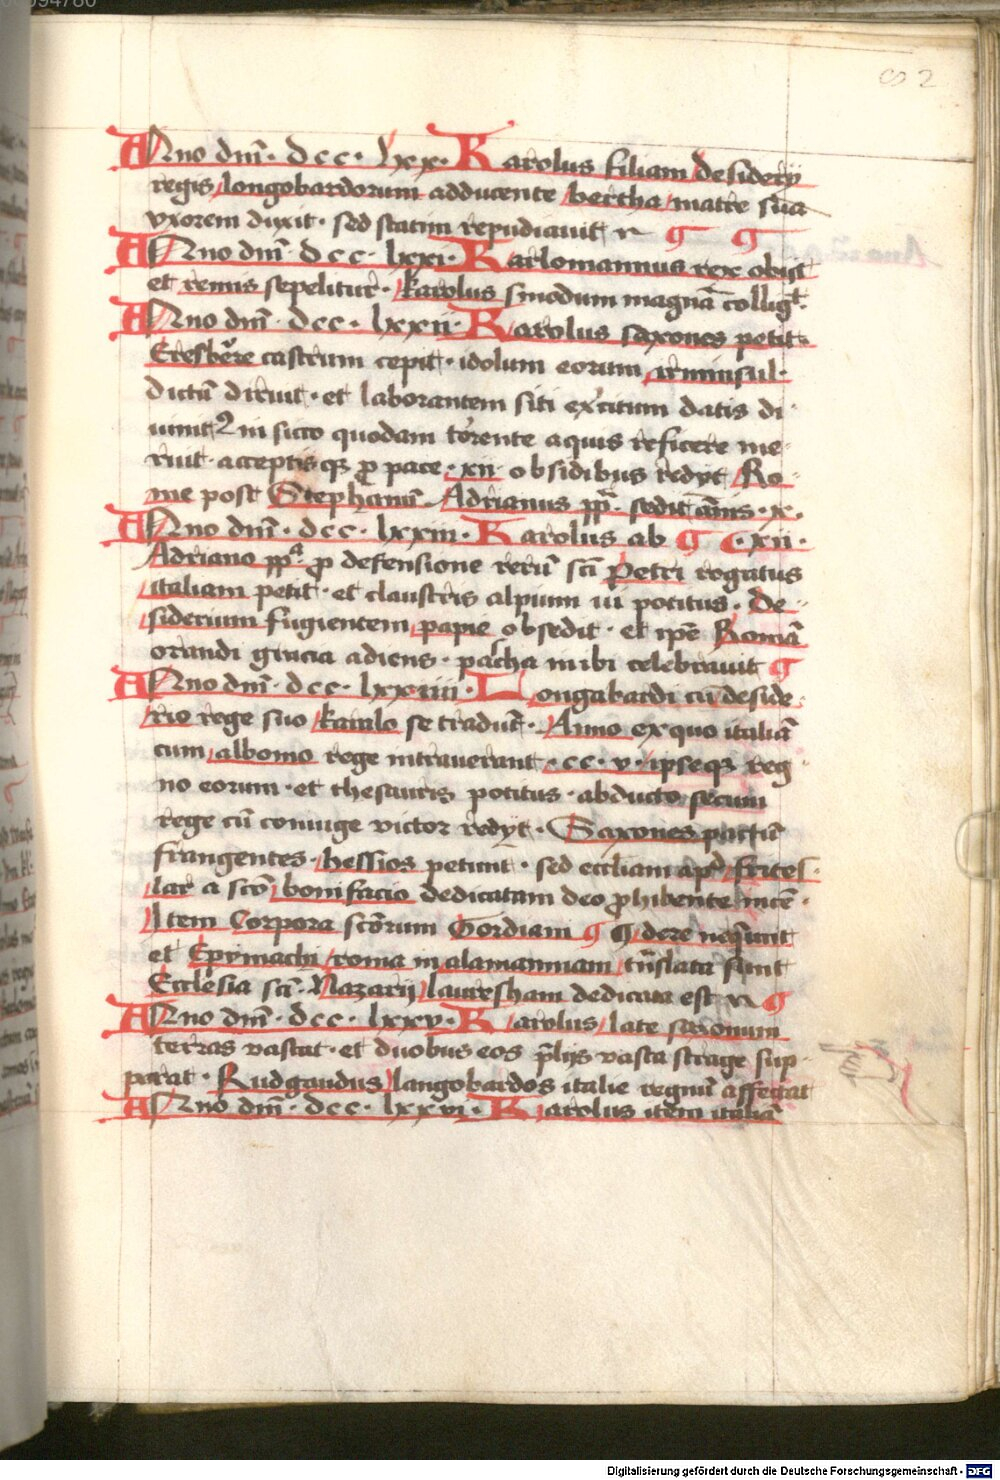 Anno dnī · dcc · lxx · Karolus filiam desiderij
regis longobardorum adducente bertha matre sua
vxorem duxit · sed statim repudiauit
Anno dnī · dcc · lxxi · Karlomannus rex obijt
et remis sepelitur · karolus sinodum magnā collig̃t ·
Anno dnī · dcc · lxxii · Karolus saxones petit
Eresburc castrum cepit · idolum eorum irminsul ·
dictū diruit · et laborantem siti exercitum datis di
uinitꝰ in sicco quodam torrente aquis reficere me
ruit · acceptisqꝫ ꝓ pace · xii · obsidibus redijt Ro
me post Stephanū Adrianus pp̄ · sedit ānis · x ·
Anno dnī · dcc · lxxiii · Karolus ab ¶ ¶ · xii ·
Adriano ppᵃ ꝓ defensione rerū scī Petri rogatus
italiam petit · et claustris alpium ui potitus · De
siderium fugientem papie obsedit · et ipē Romā
orandi gracia adiens · pascha in ibi celebrauit ¶
Anno dnī · dcc · lxxiiii · Longabardi cū deside
rio rege suo karulo se tradūt · Anno ex quo italiā
cum albomo rege intrauerant · cc · v · ipseqꝫ reg
no eorum · et thesauris potitus · abducto secum
rege cū coniuge victor redijt · Saxones pactū
frangentes · hessios petunt · sed eccliam apᵈ frites
lar a scō bonifacio dedicatam deo ꝓhibente incē ·
Item Corpora scōrum Gordiani ¶ ¶ dere neq̄unt
et Epymachi roma in alamanniam trāslata sunt
Ecclesia scī Nazarij lauresham dedicata est ¶
Anno dnī · dcc · lxxv · Karolus late saxonum
terras vastat · et duobus eos p̄lijs vasta strage sup
parat · Rudgaudus langobardos italie regnū affectat
Anno dnī · dcc · lxxvi · Karolus item italiā
Digitalisierung gefördert durch die Deutsche Forschungsgemeinschaft - DFG